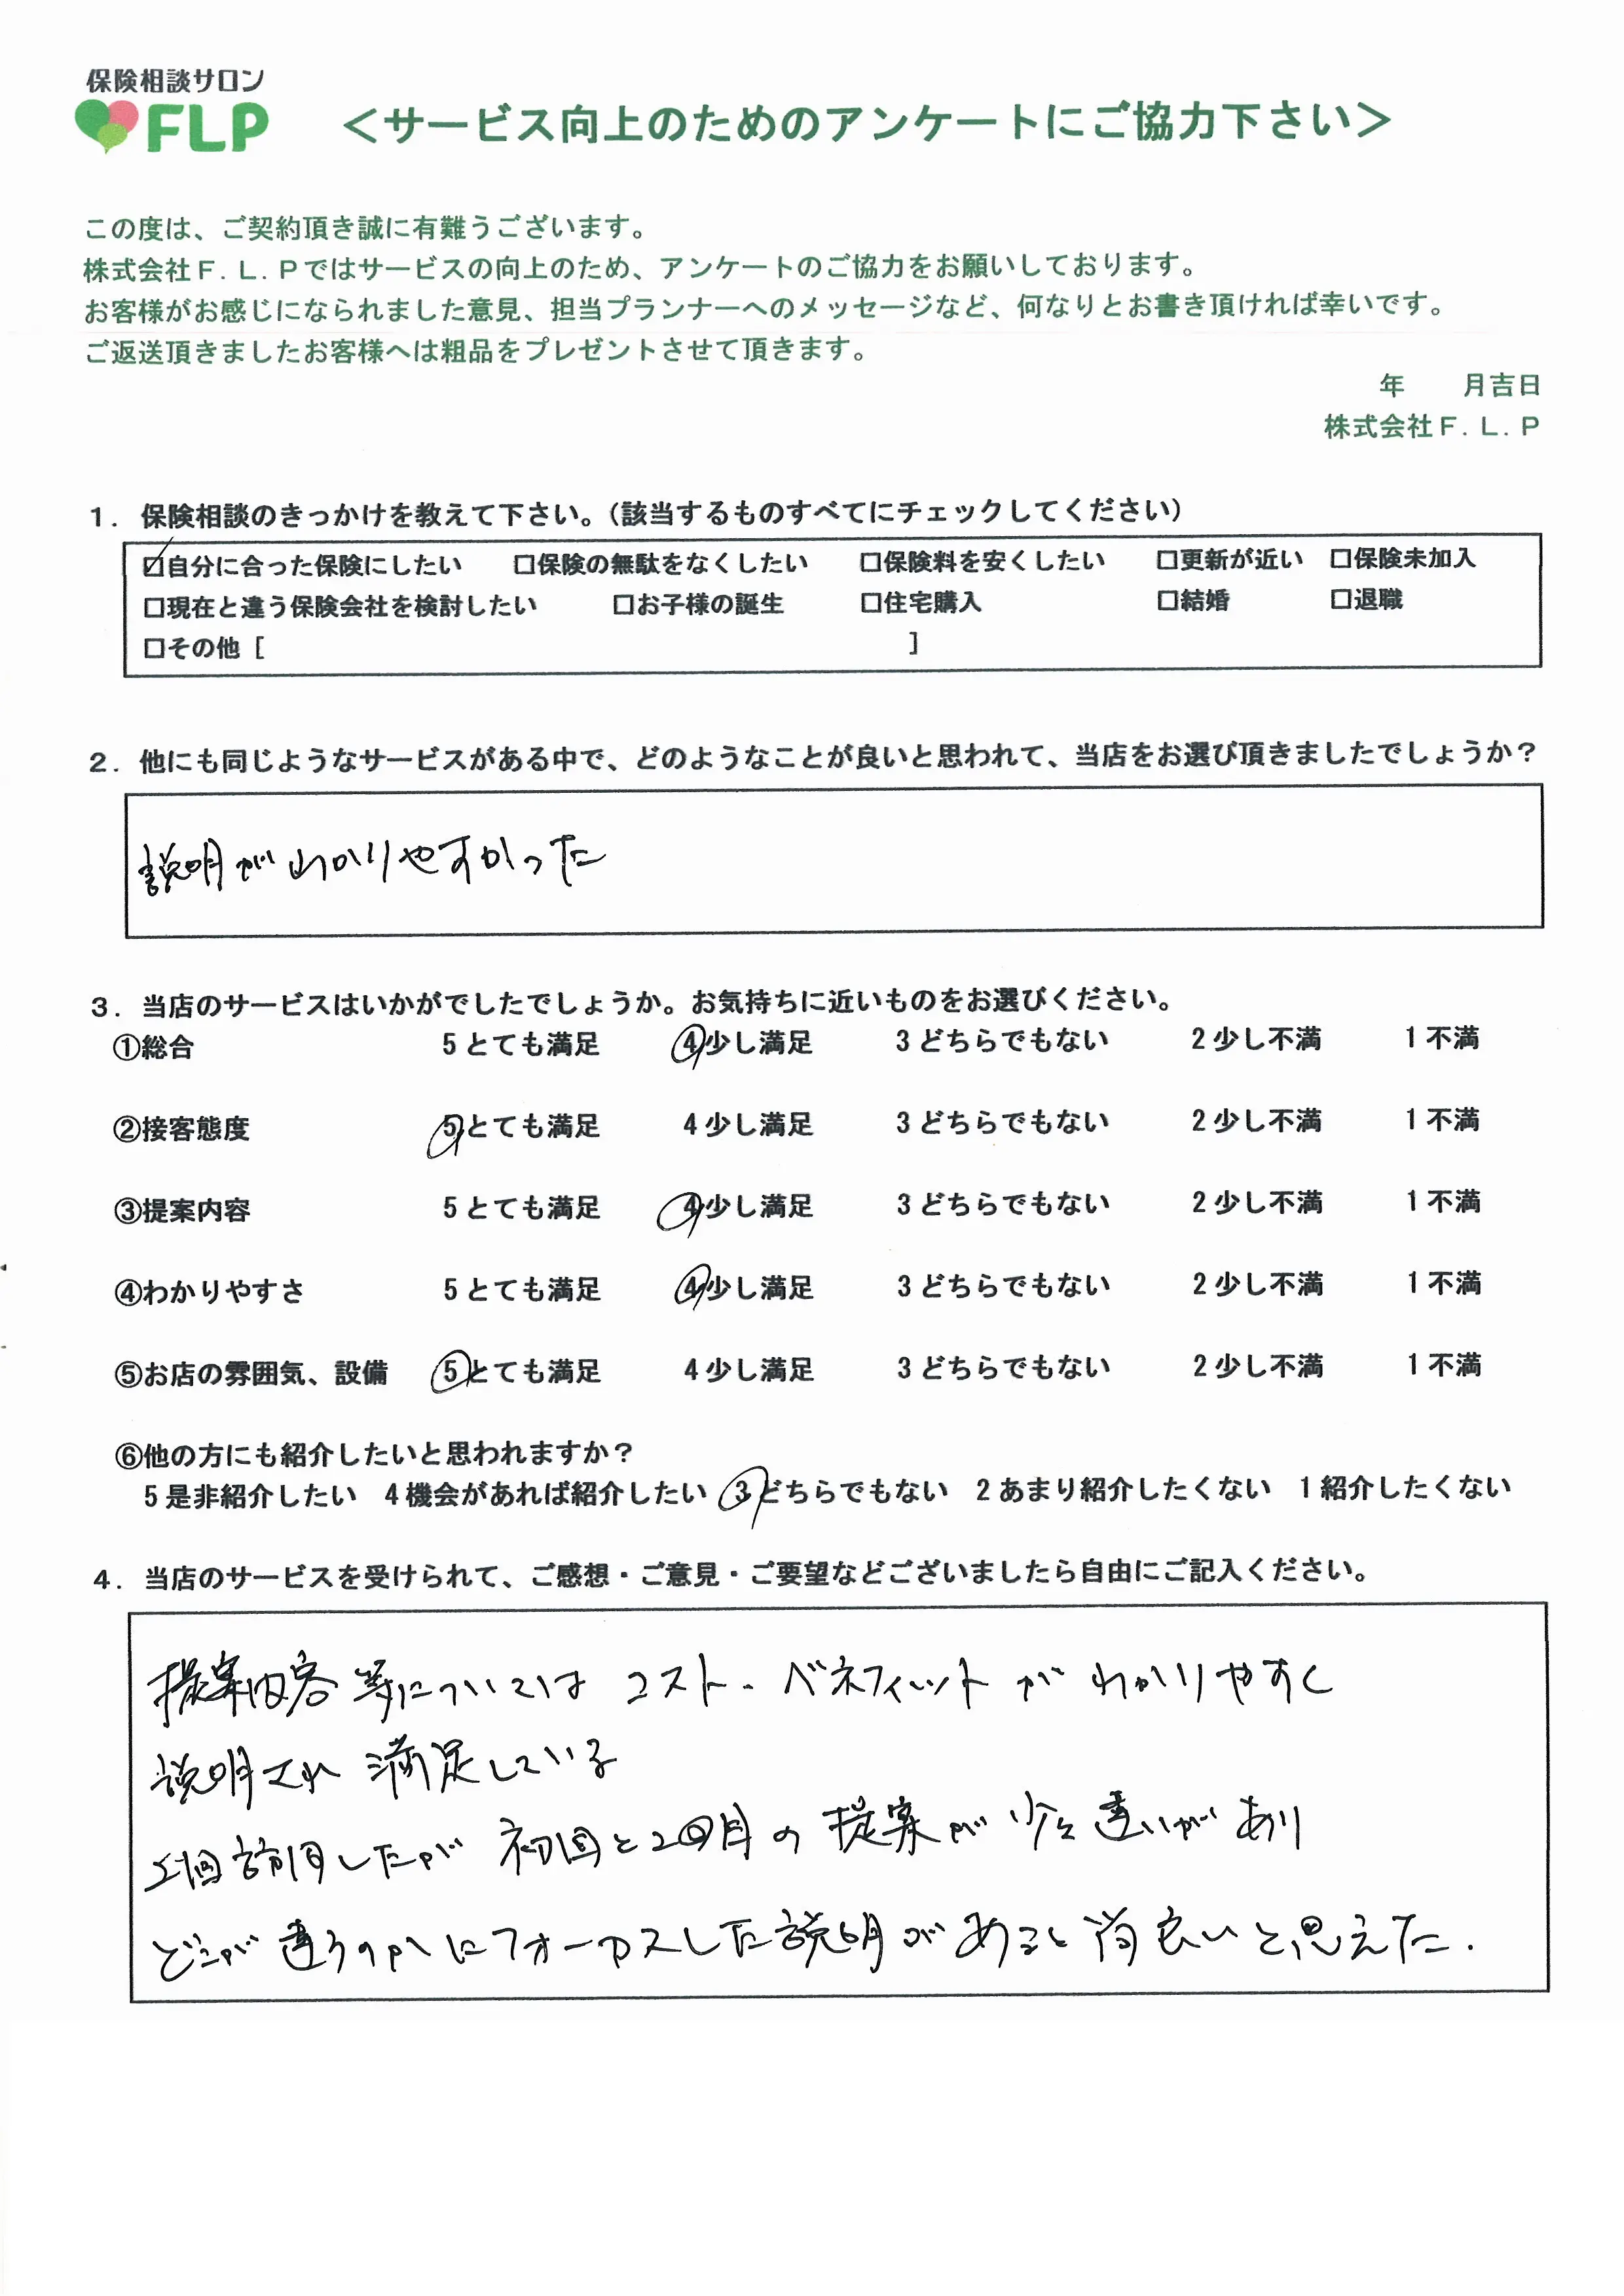 保険相談サロン
FLP
＜サービス向上のためのアンケートにご協力下さい＞
この度は、ご契約頂き誠に有難うございます。
株式会社Ｆ．Ｌ．Ｐではサービスの向上のため、アンケートのご協力をお願いしております。
お客様がお感じになられました意見、担当プランナーへのメッセージなど、何なりとお書き頂ければ幸いです。
ご返送頂きましたお客様へは粗品をプレゼントさせて頂きます。
年　　月吉日
株式会社Ｆ．Ｌ．Ｐ
１．保険相談のきっかけを教えて下さい。（該当するものすべてにチェックしてください）
☑自分に合った保険にしたい　□保険の無駄をなくしたい　□保険料を安くしたい　□更新が近い　□保険未加入
□現在と違う保険会社を検討したい　□お子様の誕生　□住宅購入　□結婚　□退職
□その他［　　　］
２．他にも同じようなサービスがある中で、どのようなことが良いと思われて、当店をお選び頂きましたでしょうか？
説明がわかりやすかった
３．当店のサービスはいかがでしたでしょうか。お気持ちに近いものをお選びください。
①総合　5とても満足　4少し満足　3どちらでもない　2少し不満　1不満
②接客態度　5とても満足　4少し満足　3どちらでもない　2少し不満　1不満
③提案内容　5とても満足　4少し満足　3どちらでもない　2少し不満　1不満
④わかりやすさ　5とても満足　4少し満足　3どちらでもない　2少し不満　1不満
⑤お店の雰囲気、設備　5とても満足　4少し満足　3どちらでもない　2少し不満　1不満
⑥他の方にも紹介したいと思われますか？
5是非紹介したい　4機会があれば紹介したい　3どちらでもない　2あまり紹介したくない　1紹介したくない
４．当店のサービスを受けられて、ご感想・ご意見・ご要望などございましたら自由にご記入ください。
提案内容等については コスト・ベネフィットが わかりやすく
説明され 満足している
2回訪問したが 初回と2回目の提案が 少々違いがあり
どこが違うのかにフォーカスした説明があると尚良いと思えた.